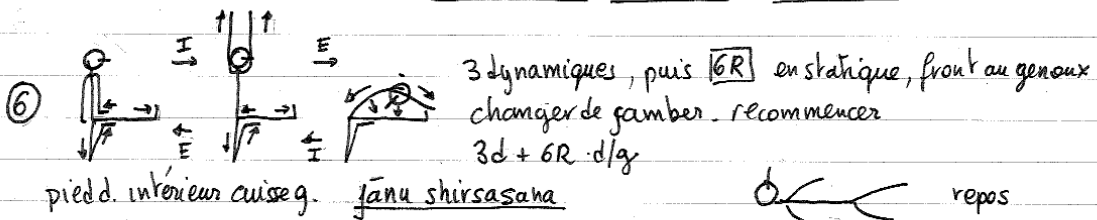 I E
3 dynamiques, puis 6R en statique, front au genoux
⑥
changer de jambes. recommencer
E I
3d + 6R . d/g
pied d. intérieur cuisse g. jānu shirsasana
repos